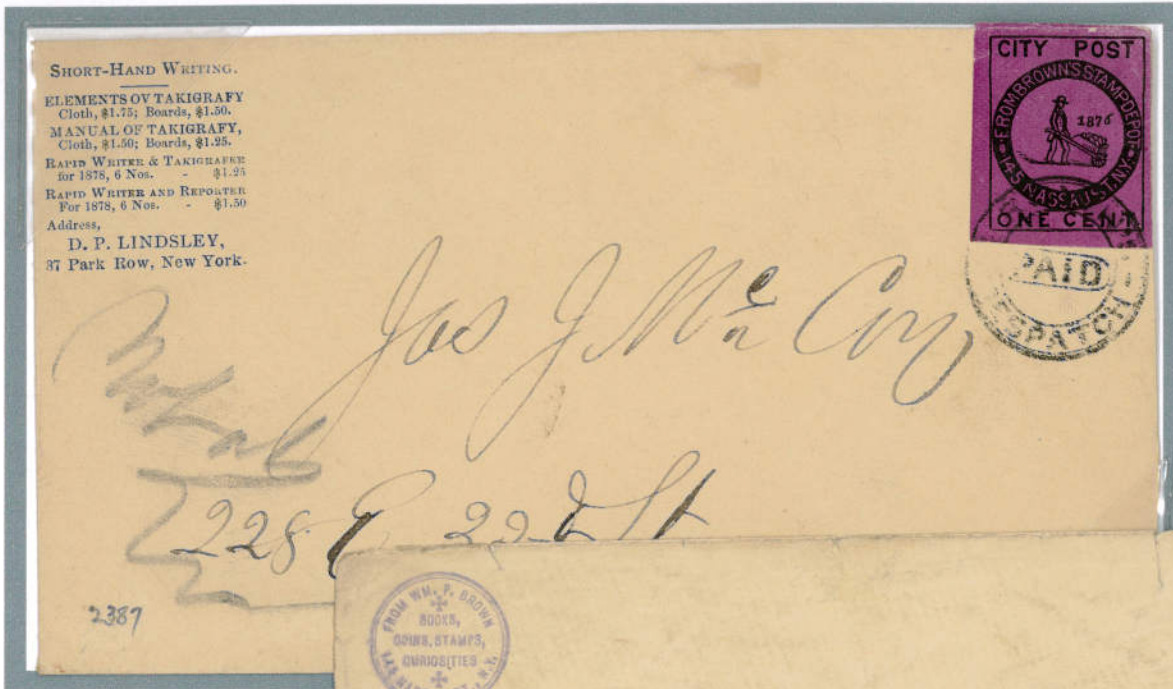 SHORT-HAND WRITING.
ELEMENTS OV TAKIGRAFY
Cloth, $1.75; Boards, $1.50.
MANUAL OF TAKIGRAFY,
Cloth, $1.50; Boards, $1.25.
RAPID WRITER & TAKIGRAFER
for 1878, 6 Nos. - $1.25
RAPID WRITER AND REPORTER
For 1878, 6 Nos. - $1.50
Address,
D. P. LINDSLEY,
37 Park Row, New York.
CITY POST
FROM BROWN'S STAMP DEPOT
1876
145 NASSAU ST. N.Y.
ONE CENT
PAID
ESPATCH
Jas J Mc
228 E 22d St
2387
FROM WM. P. BROWN
BOOKS,
COINS, STAMPS,
CURIOSITIES
N.Y.